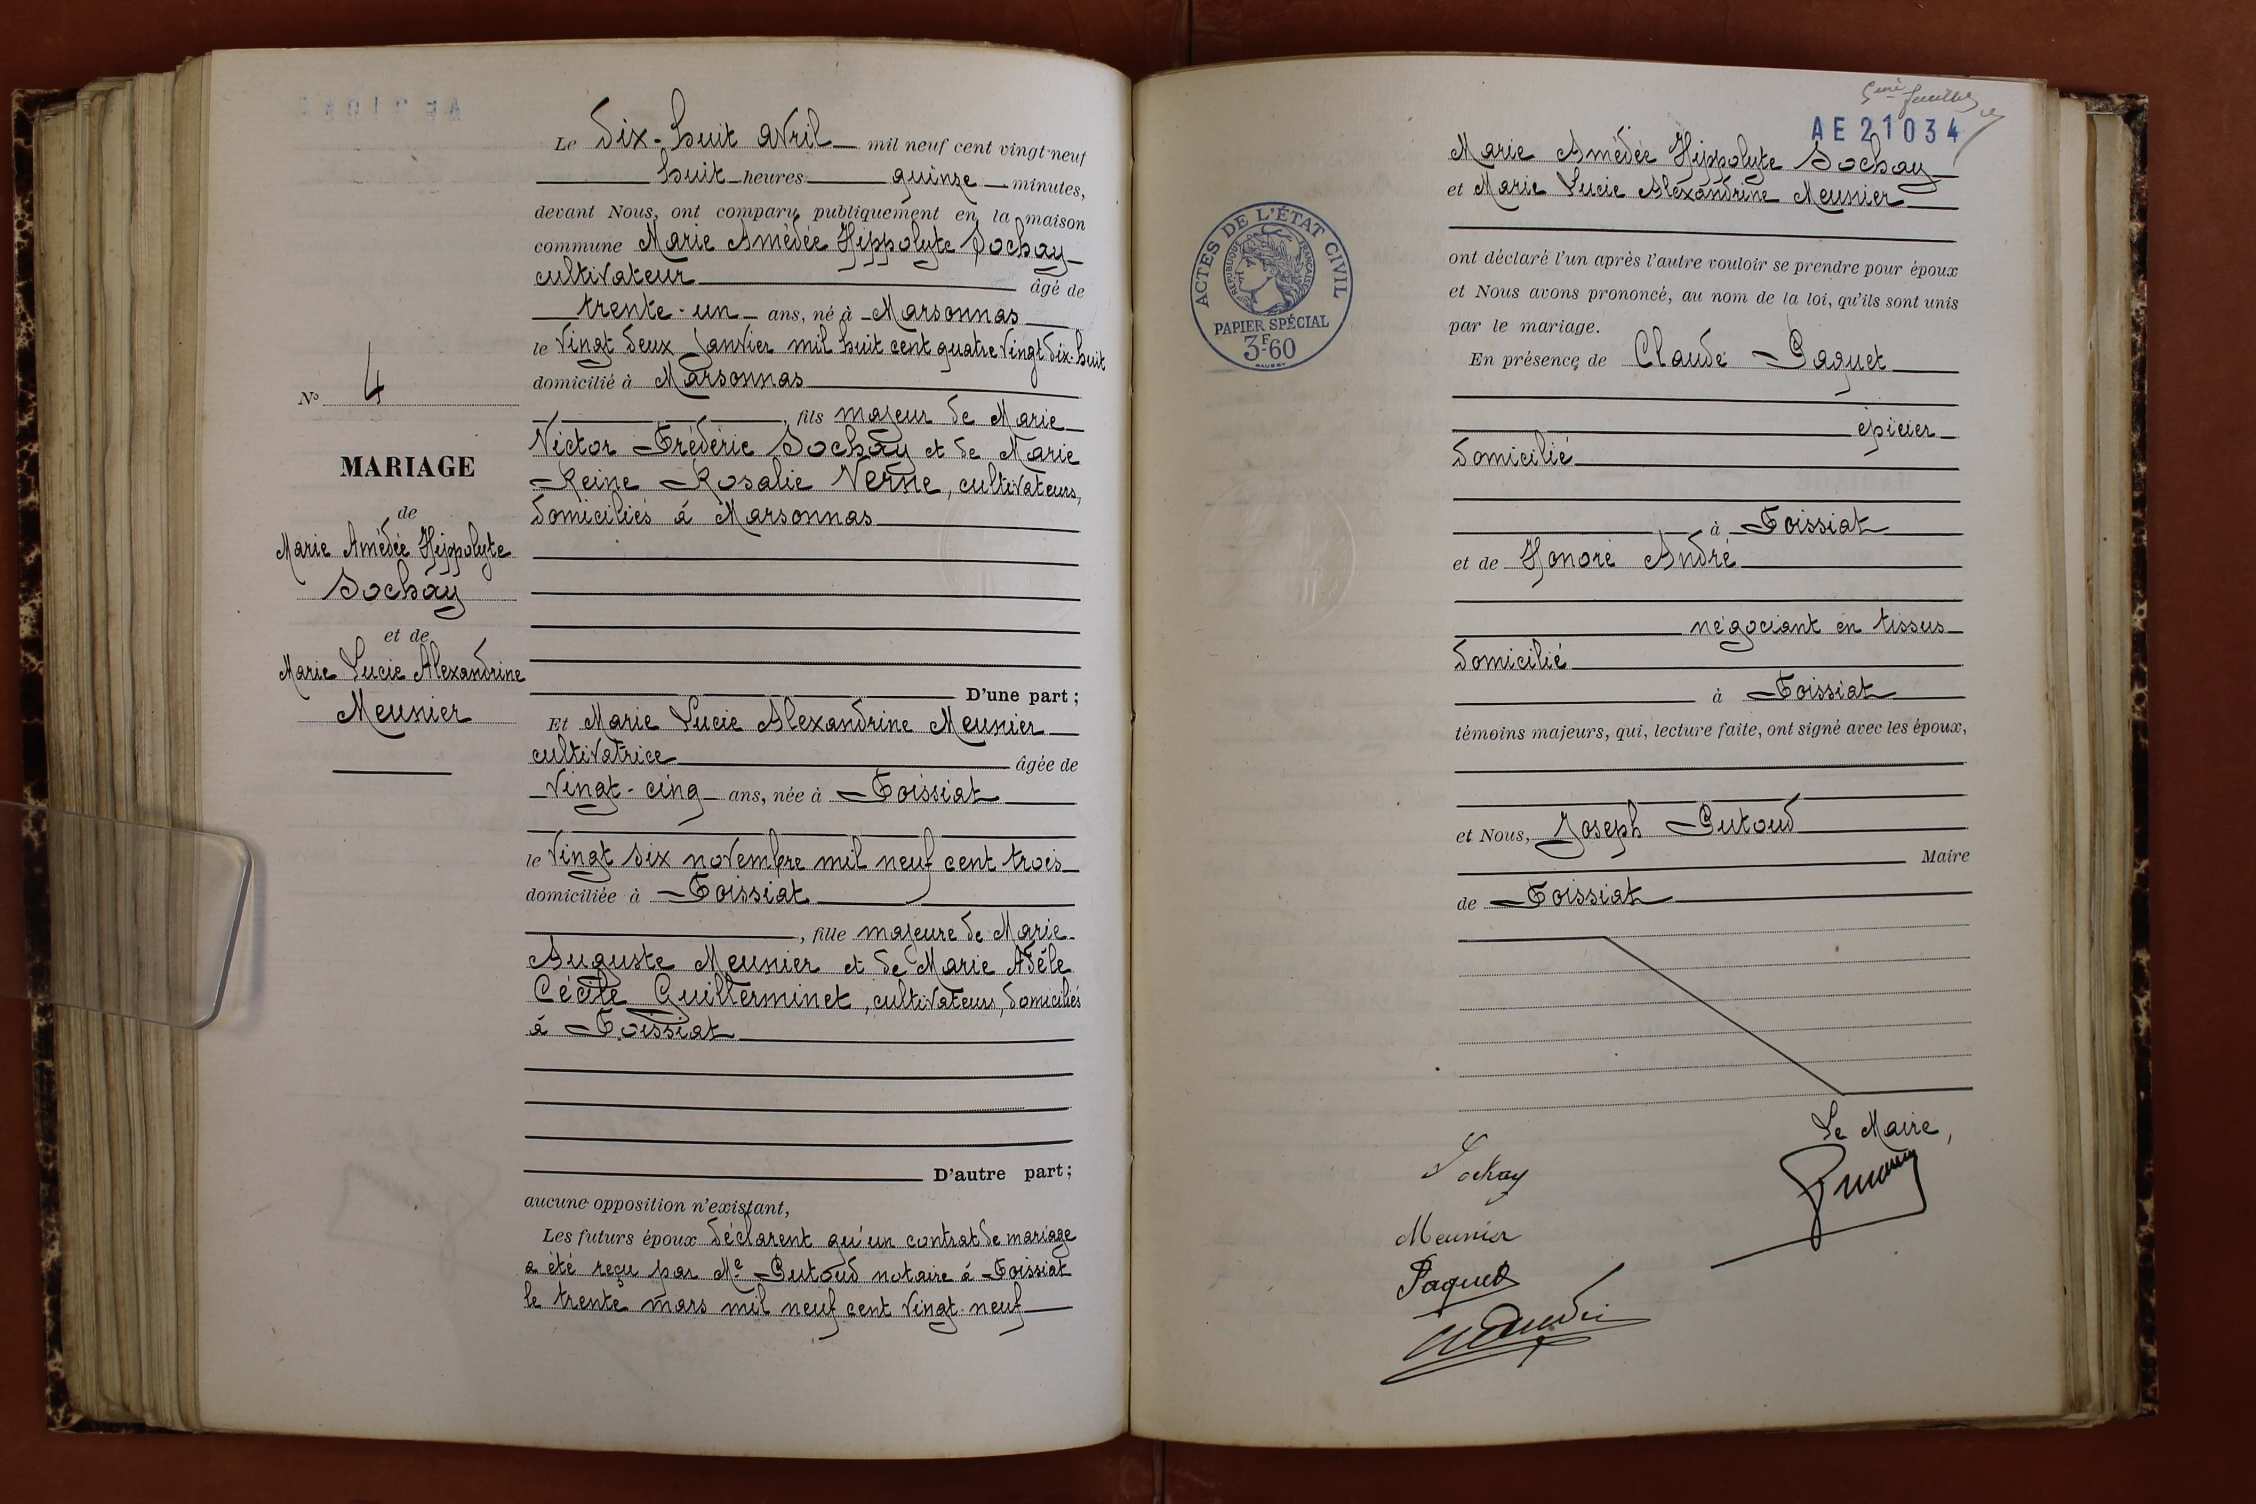 N° 4
MARIAGE
de
Marie Amédée Hippolyte
Sochay
et de
Marie Lucie Alexandrine
Meunier
Le dix-huit avril mil neuf cent vingt-neuf
huit heures quinze minutes,
devant Nous, ont comparu publiquement en la maison
commune Marie Amédée Hippolyte Sochay
cultivateur âgé de
trente-un ans, né à Marsonnas
le vingt deux janvier mil huit cent quatre vingt dix-huit
domicilié à Marsonnas
, fils majeur de Marie
Victor Frédéric Sochay et de Marie
Reine Rosalie Verne, cultivateurs,
domiciliés à Marsonnas
D'une part;
Et Marie Lucie Alexandrine Meunier
cultivatrice âgée de
vingt-cinq ans, née à Foissiat
le vingt six novembre mil neuf cent trois
domiciliée à Foissiat
, fille majeure de Marie
Auguste Meunier et de Marie Adèle
Cécile Guillerminet, cultivateurs, domiciliés
à Foissiat
D'autre part;
aucune opposition n'existant,
Les futurs époux déclarent qu'un contrat de mariage
a été reçu par Me Putoud notaire à Foissiat
le trente mars mil neuf cent vingt-neuf
AE 21034
Marie Amédée Hippolyte Sochay
et Marie Lucie Alexandrine Meunier
ACTES DE L'ÉTAT CIVIL
RÉPUBLIQUE FRANÇAISE
PAPIER SPÉCIAL
3F-60
ont déclaré l'un après l'autre vouloir se prendre pour époux
et Nous avons prononcé, au nom de la loi, qu'ils sont unis
par le mariage.
En présence de Claude Paquet
épicier
domicilié
à Foissiat
et de Honoré André
négociant en tissus
domicilié
à Foissiat
témoins majeurs, qui, lecture faite, ont signé avec les époux,
et Nous, Joseph Putoud
Maire
de Foissiat
Le Maire,
Sochay
Meunier
Paquet